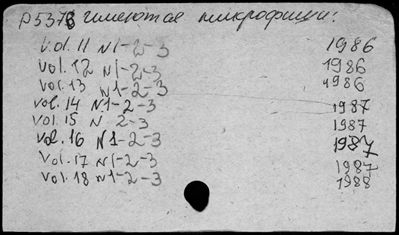 р5378 имеются микрофиши:
vol. 11 N1-2-3 1986
vol. 12 N1-2-3 1986
vol. 13 N1-2-3 1986
vol. 14 N1-2-3 1987
vol. 15 N 2-3 1987
vol. 16 N1-2-3 1987
vol. 17 N1-2-3 1987
vol. 18 N1-2-3 1988